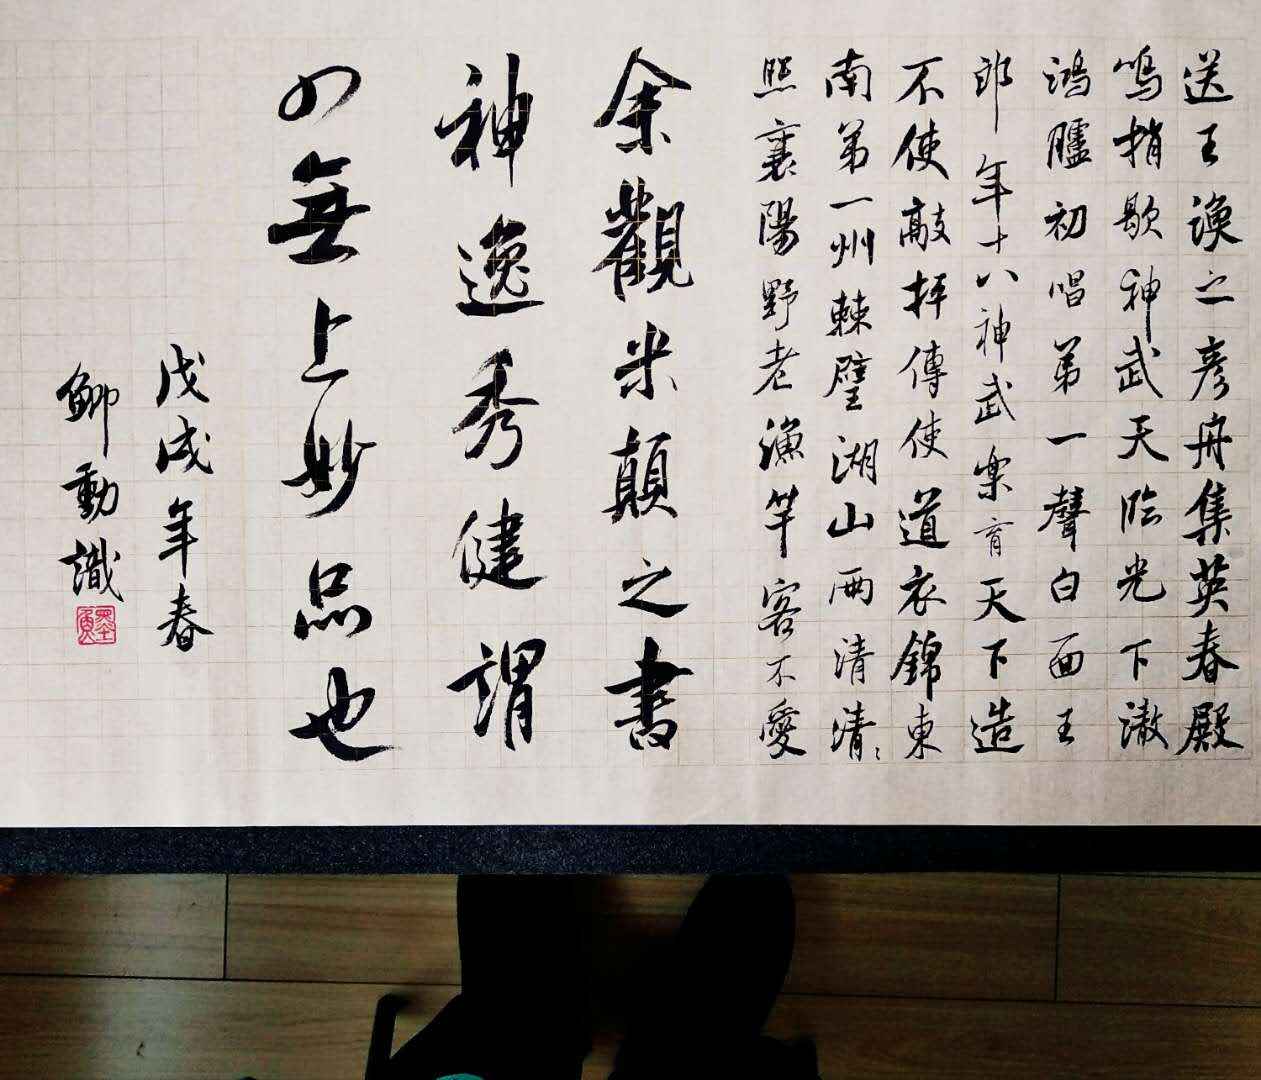 送王渙之彥舟集英春殿
鳴捎歇神武天臨光下澈
鴻臚初唱第一聲白面王
郎年十八神武樂育天下造
不使敲抨傳使道衣錦東
南第一州棘璧湖山兩清清〻
照襄陽野老漁竿客不愛
余觀米顛之書
神逸秀健謂
の無上妙品也
戊戌年春
鄉動識